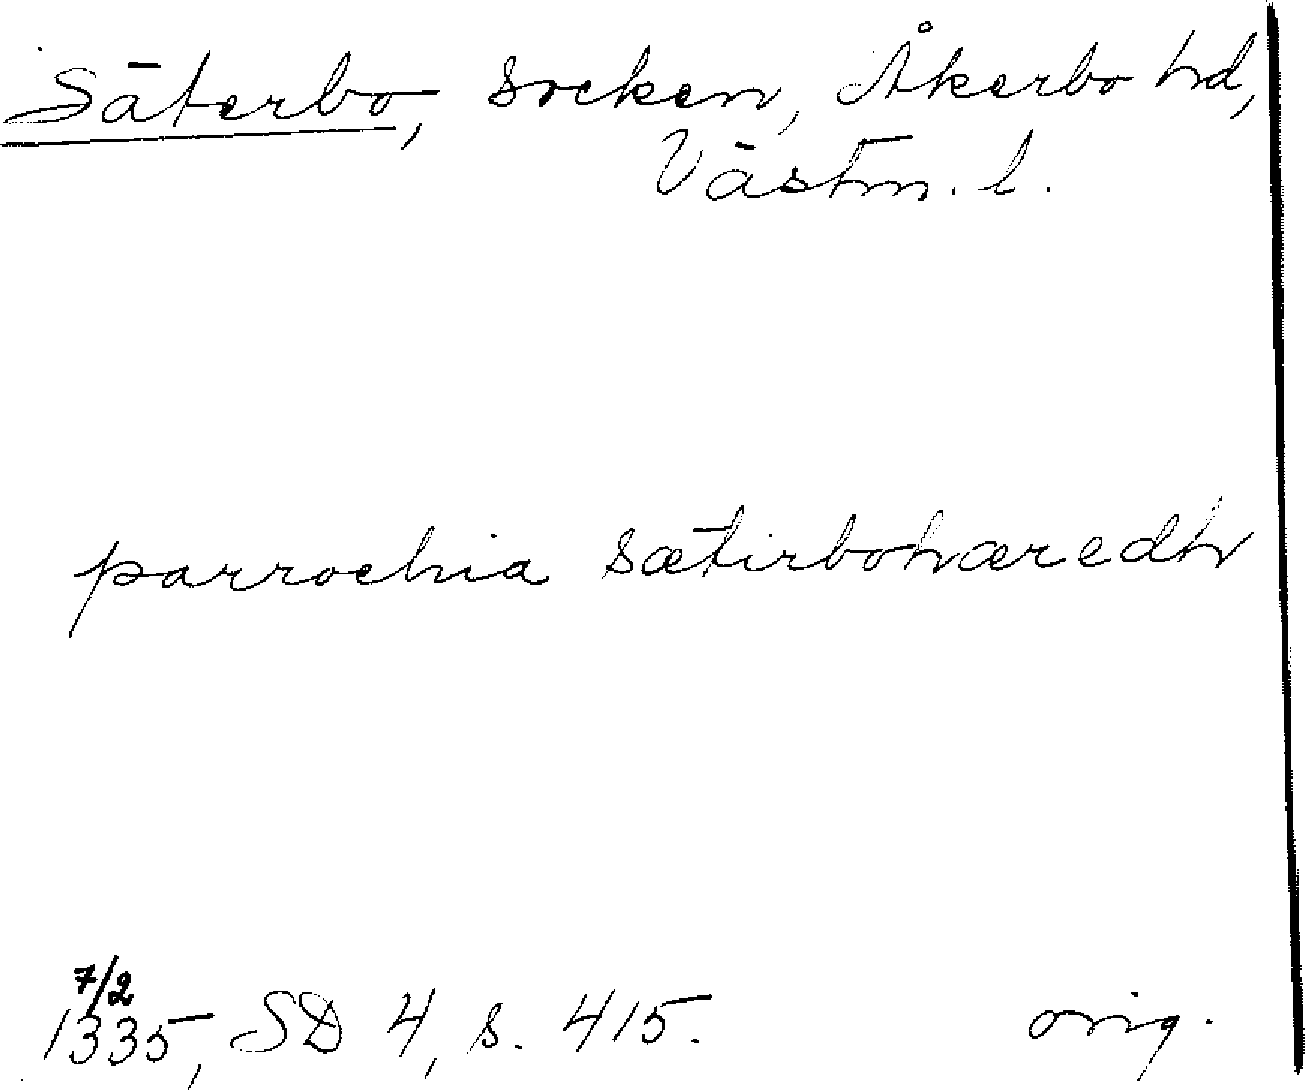 Säterbo, socken, Åkerbo hd,
Västm. l.
parrochia sætirbohæredh
7/2
1335, SD 4, s. 415.
orig.